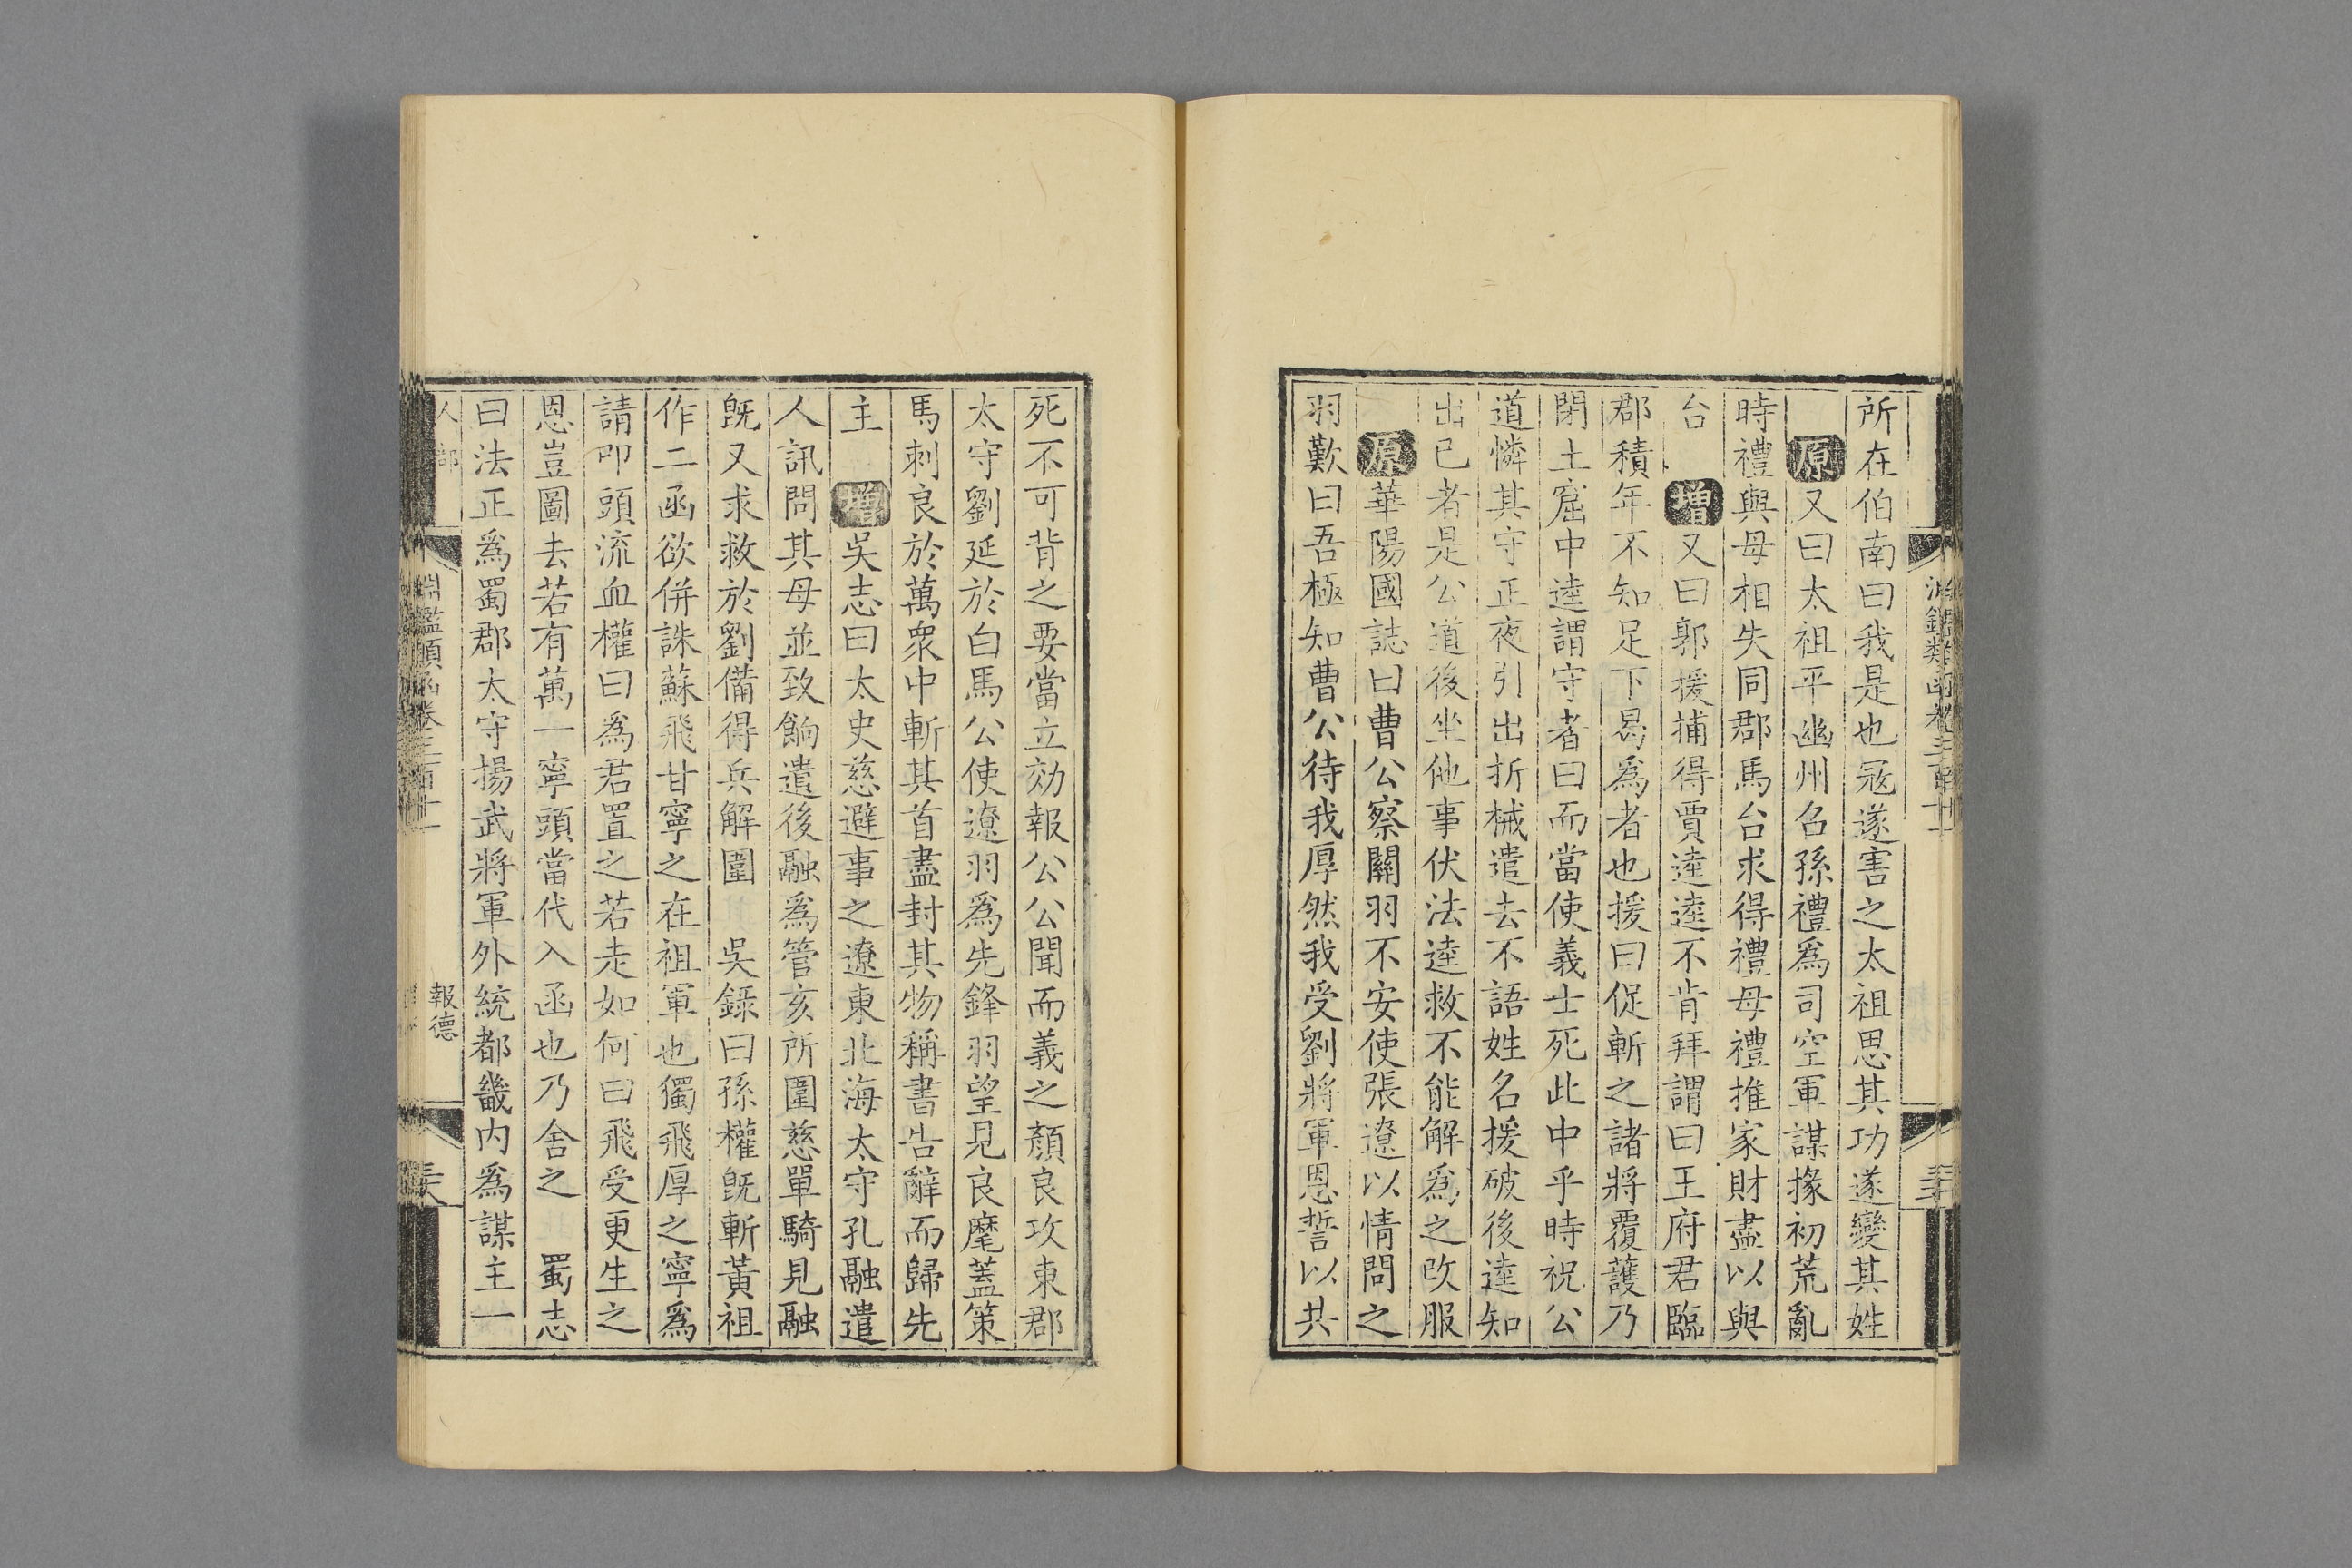 所在伯南曰我是也寇遂害之太祖思其功遂變其姓
原又曰太祖平幽州名孫禮爲司空軍謀掾初荒亂
時禮與母相失同郡馬台求得禮母禮推家財盡以與
台 增又曰郭援捕得賈逵逵不肯拜謂曰王府君臨
郡積年不知足下曷爲者也援曰促斬之諸將覆護乃
閉土窟中逵謂守者曰而當使義士死此中乎時祝公
道憐其守正夜引出折械遣去不語姓名援破後逵知
出已者是公道後坐他事伏法逵救不能解爲之改服
原華陽國誌曰曹公察關羽不安使張遼以情問之
羽歎曰吾極知曹公待我厚然我受劉將軍恩誓以共
死不可背之要當立効報公公聞而義之顏良攻東郡
太守劉延於白馬公使遼羽爲先鋒羽望見良麾蓋策
馬刺良於萬衆中斬其首盡封其物稱書告辭而歸先
主 增吳志曰太史慈避事之遼東北海太守孔融遣
人訊問其母並致餉遺後融爲管亥所圍慈單騎見融
旣又求救於劉備得兵解圍 吳錄曰孫權旣斬黃祖
作二函欲併誅蘇飛甘寧之在祖軍也獨飛厚之寧爲
請叩頭流血權曰爲君置之若走如何曰飛受更生之
恩豈圖去若有萬一寧頭當代入函也乃舍之 蜀志
曰法正爲蜀郡太守揚武將軍外統都畿内爲謀主一
人部
淵鑑類函卷三百十一
報德